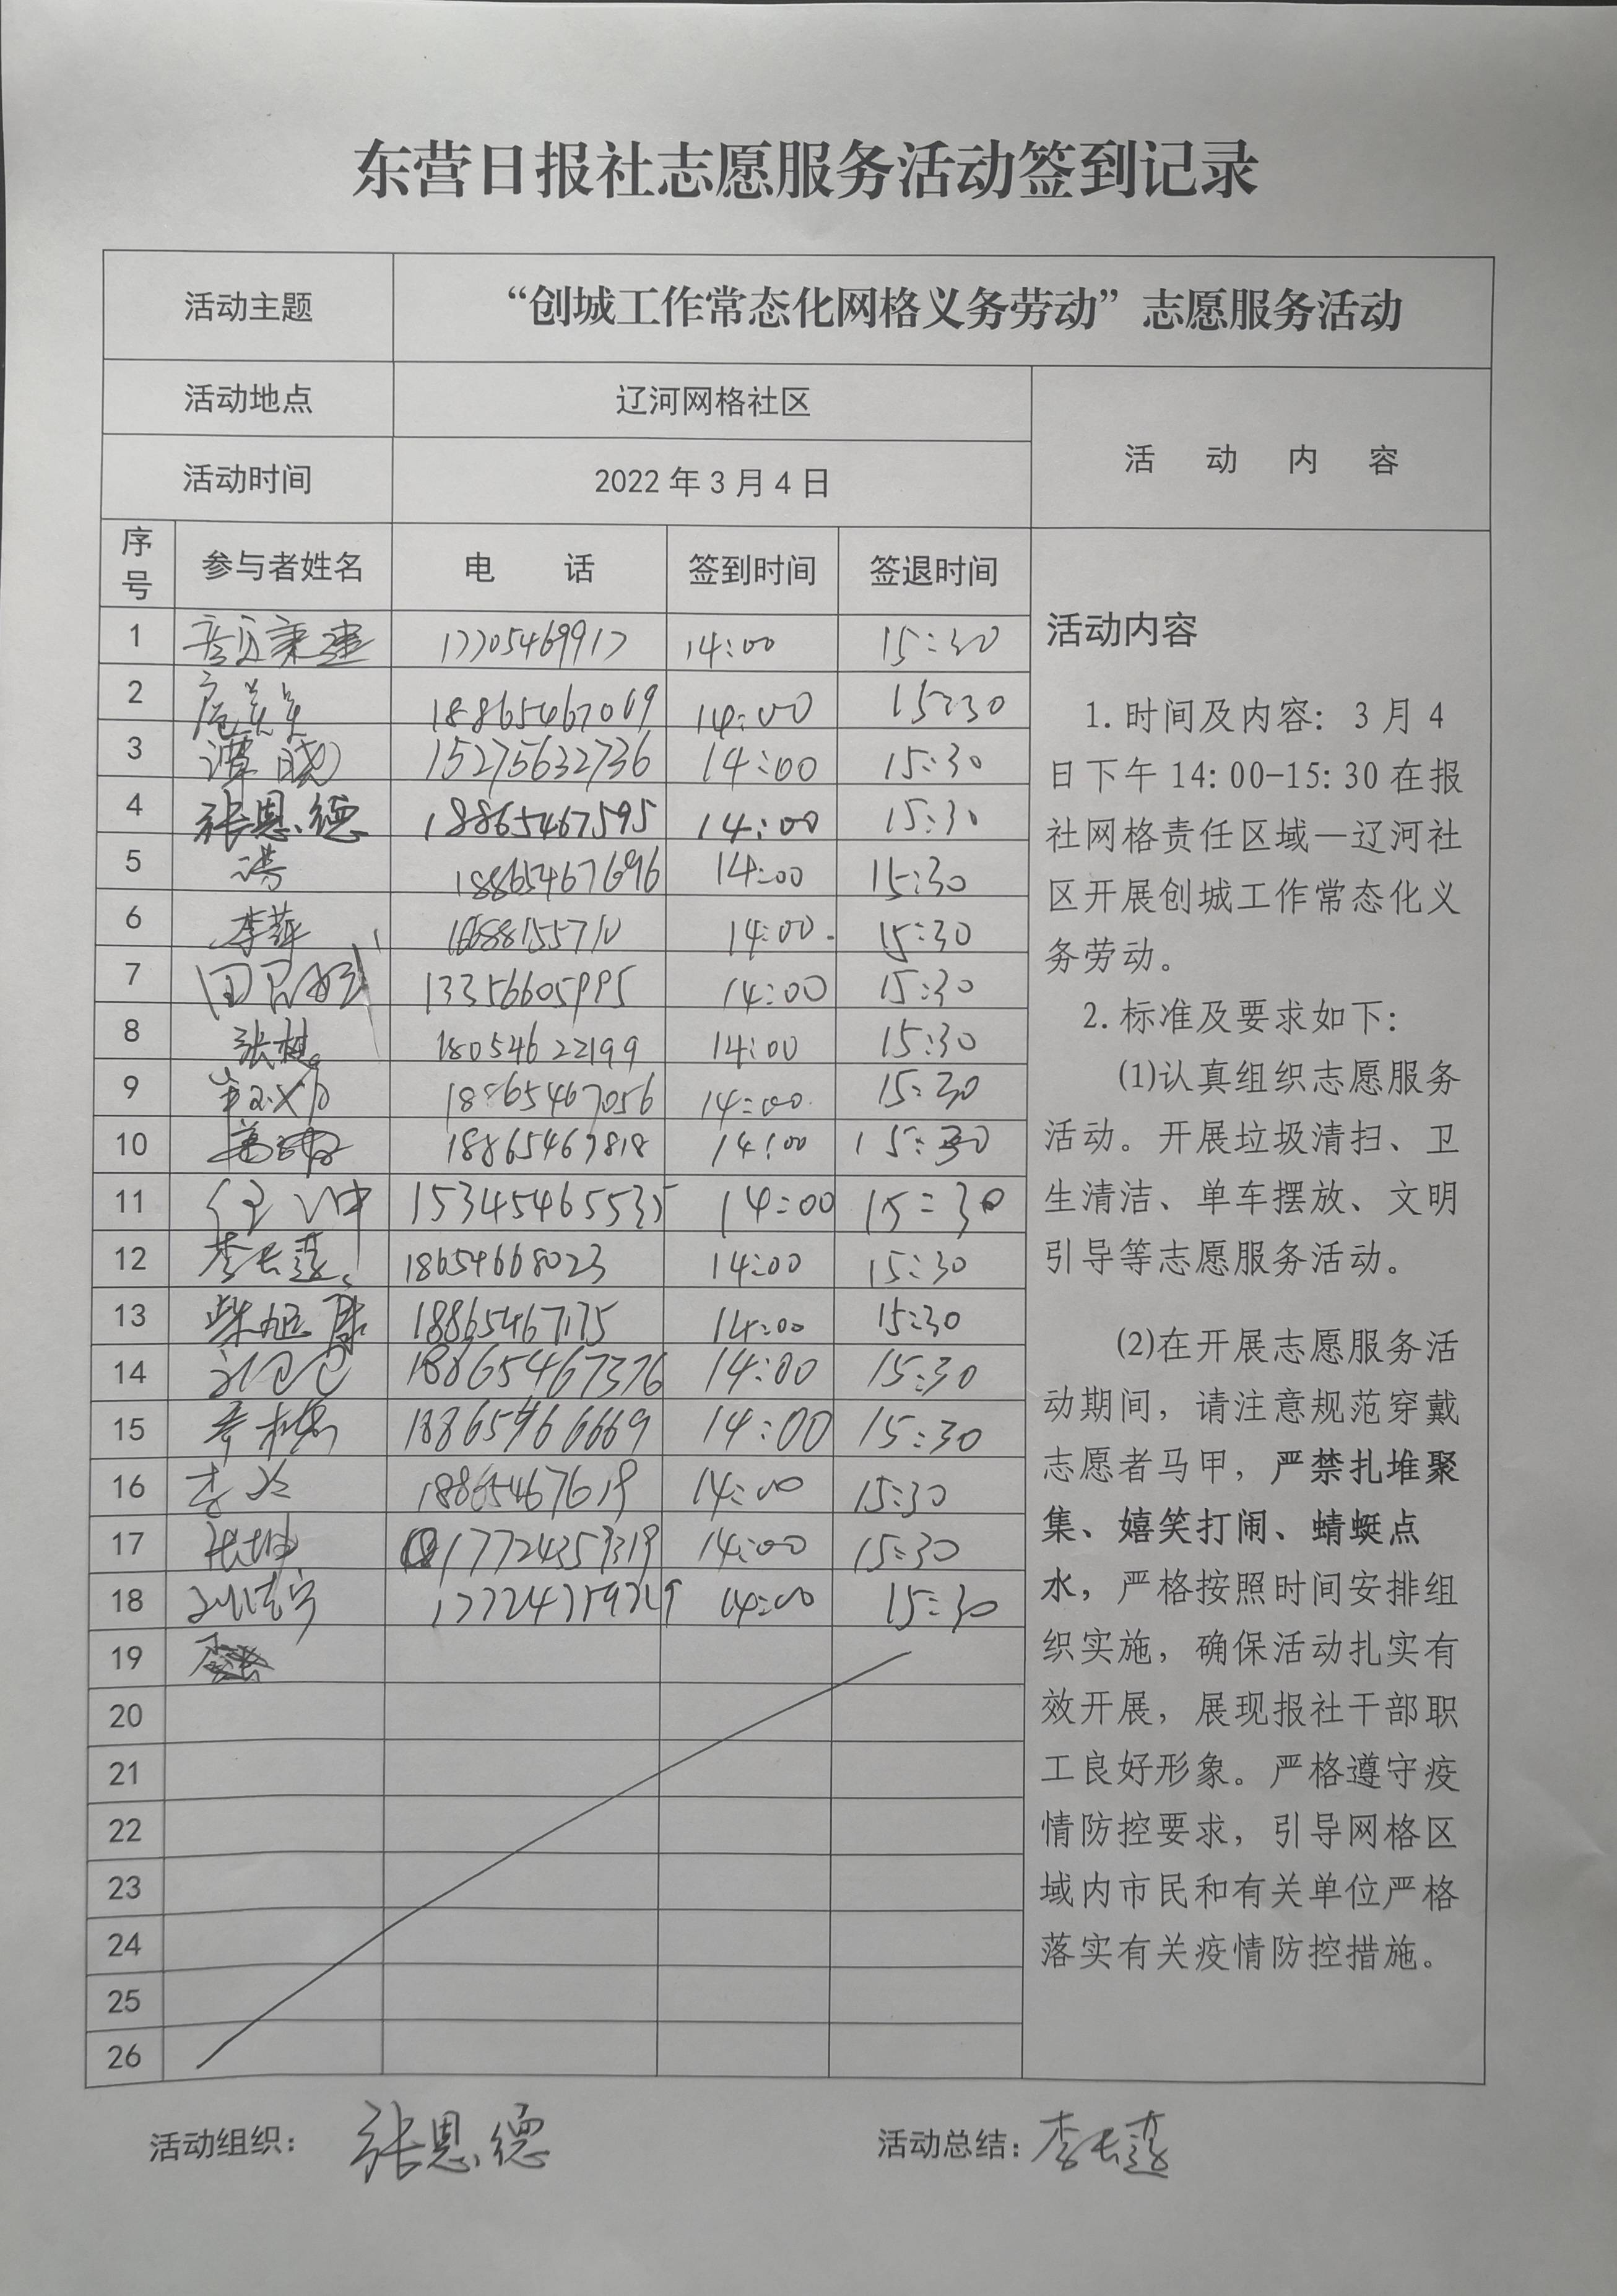 东营日报社志愿服务活动签到记录
活动主题 “创城工作常态化网格义务劳动”志愿服务活动
活动地点 辽河网格社区
活动时间 2022年3月4日
活 动 内 容
序号 参与者姓名 电 话 签到时间 签退时间
1 14:00 15:30
2 18865467069 14:00 15:30
3 谭晓 15275632736 14:00 15:30
4 张恩德 18865467595 14:00 15:30
5 18865467696 14:00 15:30
6 李萍 14:00 15:30
7 13356605995 14:00 15:30
8 18054622199 14:00 15:30
9 18865467056 14:00 15:30
10 14:00 15:30
11 任冲 14:00 15:30
12 李长莲 18654668023 14:00 15:30
13 柴旭康 18865467175 14:00 15:30
14 18865467376 14:00 15:30
15 18865466669 14:00 15:30
16 18865467619 14:00 15:30
17 张坤 17724359319 14:00 15:30
18 14:00 15:30
19
20
21
22
23
24
25
26
活动内容
1.时间及内容：3月4
日下午14:00-15:30在报
社网格责任区域—辽河社
区开展创城工作常态化义
务劳动。
2.标准及要求如下：
(1)认真组织志愿服务
活动。开展垃圾清扫、卫
生清洁、单车摆放、文明
引导等志愿服务活动。
(2)在开展志愿服务活
动期间，请注意规范穿戴
志愿者马甲，严禁扎堆聚
集、嬉笑打闹、蜻蜓点
水，严格按照时间安排组
织实施，确保活动扎实有
效开展，展现报社干部职
工良好形象。严格遵守疫
情防控要求，引导网格区
域内市民和有关单位严格
落实有关疫情防控措施。
活动组织：张恩德 活动总结：李长莲